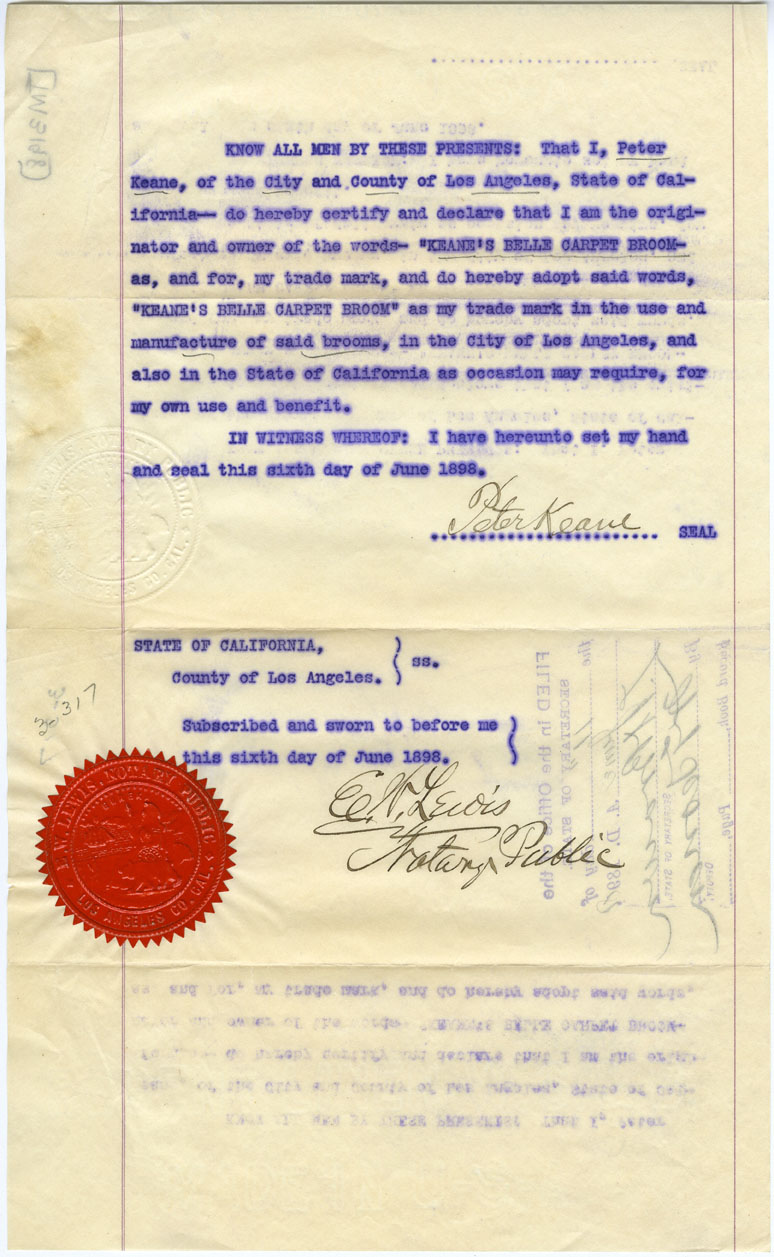 KNOW ALL MEN BY THESE PRESENTS: That I, Peter
Keane, of the City and County of Los Angeles, State of Cal-
ifornia— do hereby certify and declare that I am the origi-
nator and owner of the words- "KEANE'S BELLE CARPET BROOM-
as, and for, my trade mark, and do hereby adopt said words,
"KEANE'S BELLE CARPET BROOM" as my trade mark in the use and
manufacture of said brooms, in the City of Los Angeles, and
also in the State of California as occasion may require, for
my own use and benefit.
IN WITNESS WHEREOF: I have hereunto set my hand
and seal this sixth day of June 1898.
Peter Keane
SEAL
STATE OF CALIFORNIA,
County of Los Angeles. ss.
Subscribed and sworn to before me
this sixth day of June 1898.
E.W. Lewis
Notary Public
E.W. LEWIS, NOTARY PUBLIC
LOS ANGELES CO. CAL.
317
TM 3198
FILED in the Office of the
SECRETARY OF STATE
the
day of
June A. D. 1898
SECRETARY OF STATE
By
DEPUTY
Record Book
Page